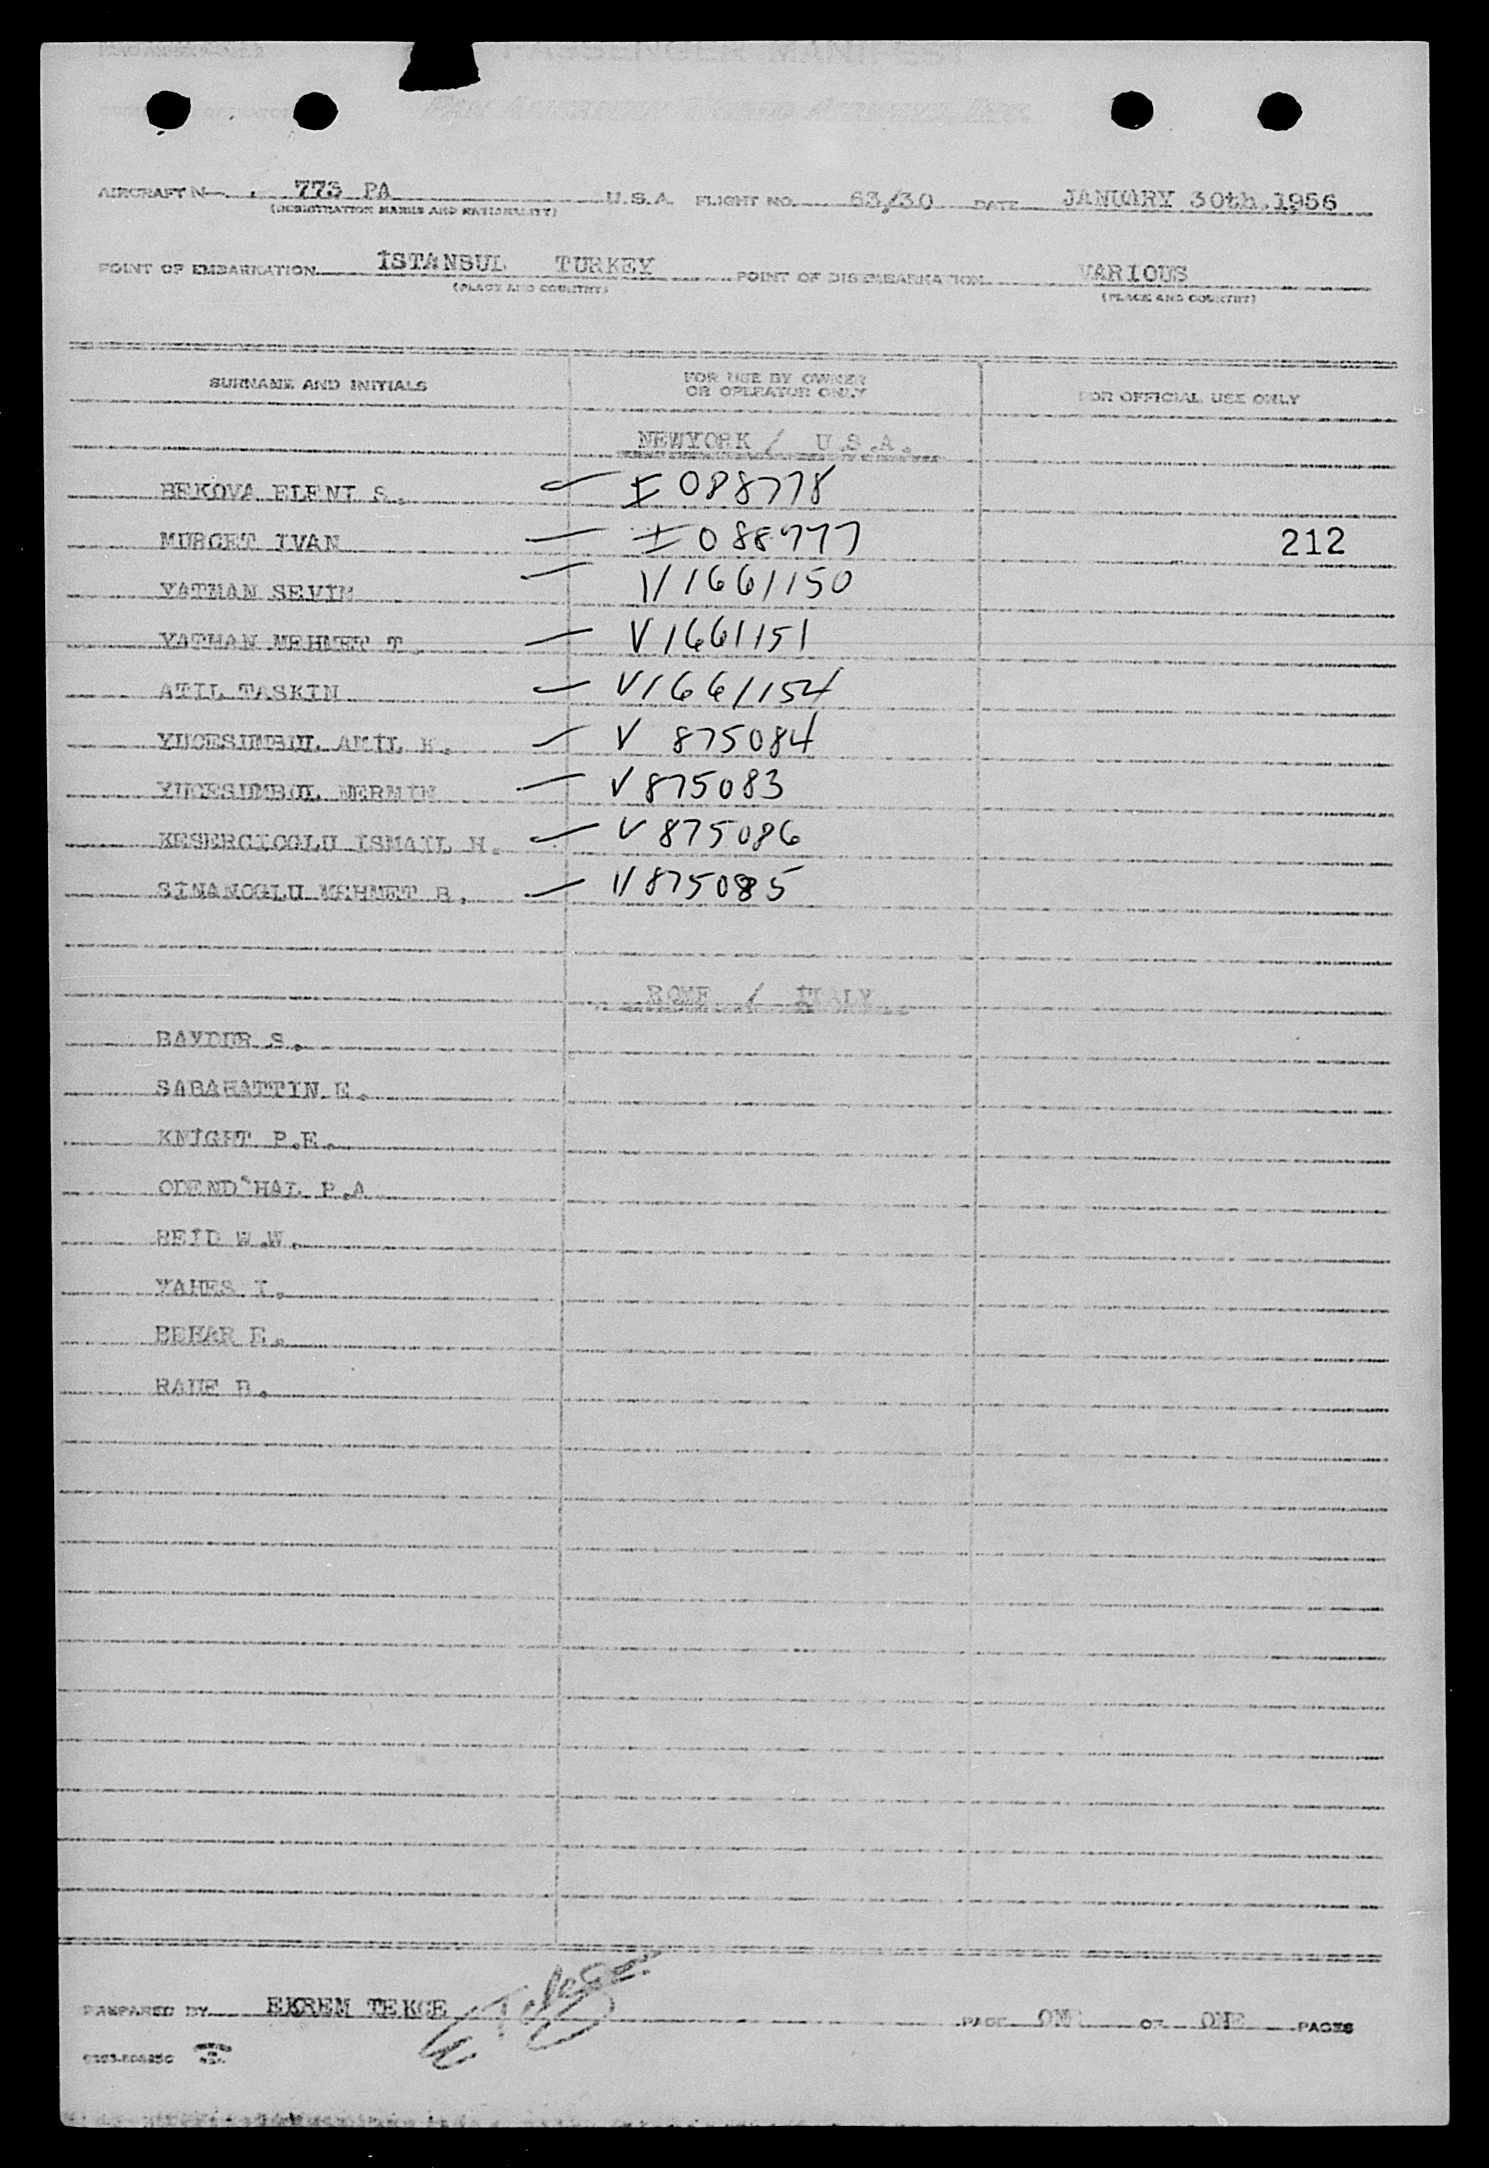 PASSENGER MANIFEST
PAN AMERICAN WORLD AIRWAYS, INC.
AIRCRAFT N 773 PA U.S.A. FLIGHT NO. 63/30 DATE JANUARY 30th.1956
(REGISTRATION MARKS AND NATIONALITY)
POINT OF EMBARKATION ISTANBUL TURKEY POINT OF DISEMBARKATION VARIOUS
(PLACE AND COUNTRY) (PLACE AND COUNTRY)
SURNAME AND INITIALS FOR USE BY OWNER OR OPERATOR ONLY FOR OFFICIAL USE ONLY
NEWYORK / U.S.A.
BEKOVA ELENI S. I 088778
MURGET IVAN I 088777 212
YATMAN SEVIM V1661150
YATMAN MEHMET T. V1661151
ATIL TASKIN V1661154
YUCESUMBUL ANIL H. V 875084
YUCESUMBUL NERMIN V875083
KESERCIOGLU ISMAIL H. V 875086
SINANOGLU MEHMET B. V875085
ROME / ITALY
BAYDUR S.
SABAHATTIN E.
KNIGHT P.E.
ODEND'HAL P.A
REID W.W.
YAHES I.
BEHAR E.
RAUF D.
PREPARED BY EKREM TEKCE PAGE ONE OF ONE PAGES